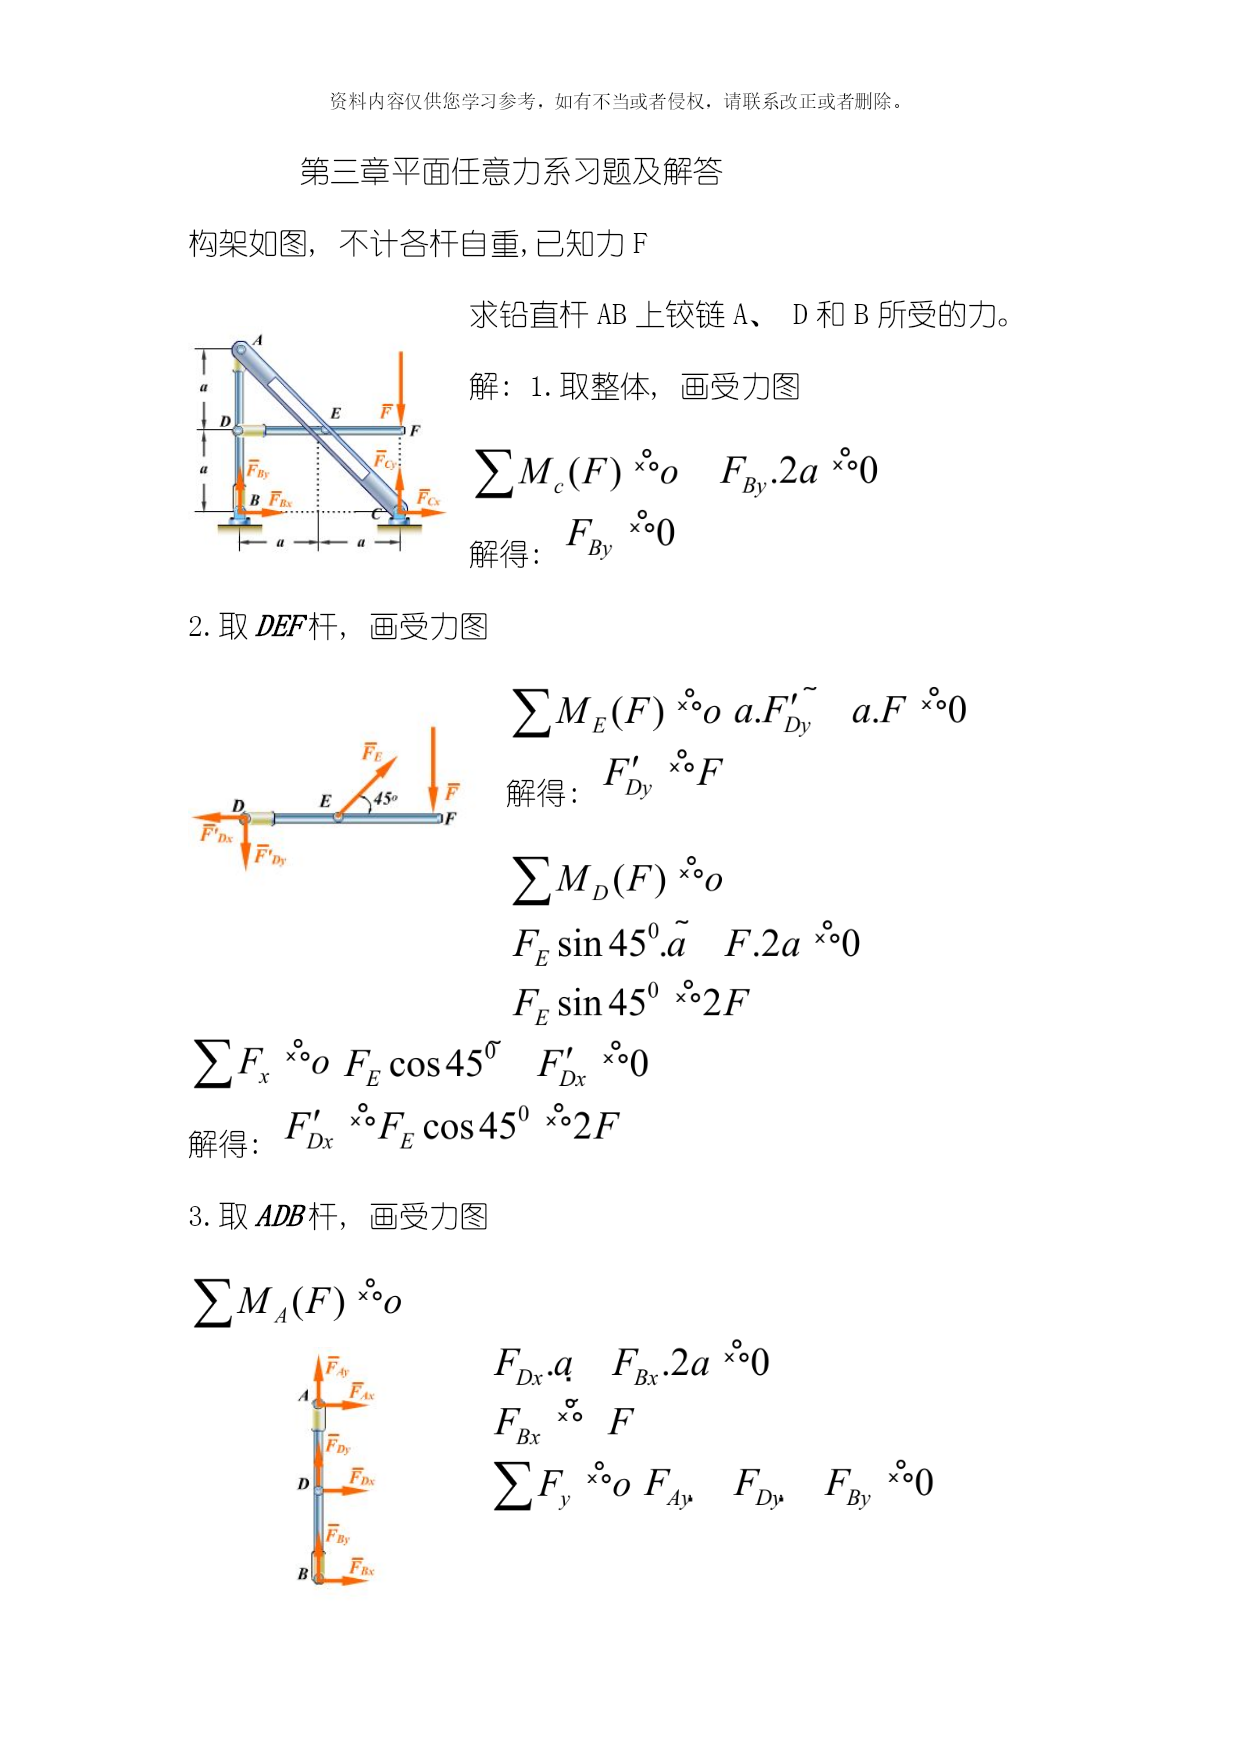 资料内容仅供您学习参考，如有不当或者侵权，请联系改正或者删除。
第三章平面任意力系习题及解答
构架如图，不计各杆自重,已知力 F
求铅直杆 AB 上铰链 A、 D 和 B 所受的力。
A
a
D
E
F̅
F
a
F̅By
F̅Cy
B
F̅Bx
C
F̅Cx
a
a
解：1.取整体，画受力图
∑Mc(F) ×°°o FBy.2a ×°°0
解得： FBy ×°°0
2.取 DEF杆，画受力图
F̅E
D
E
45o
F̅
F
F̅'Dx
F̅'Dy
∑ME(F) ×°°o a.F′Dy ~ a.F ×°°0
解得： F′Dy ×°°F
∑MD(F) ×°°o
FE sin 45⁰.a ~ F.2a ×°°0
FE sin 45⁰ ×°°2F
∑Fx ×°°o FE cos 45⁰ ~ F′Dx ×°°0
解得： F′Dx ×°°FE cos 45⁰ ×°°2F
3.取 ADB杆，画受力图
∑MA(F) ×°°o
F̅Ay
A
F̅Ax
F̅Dy
D
F̅Dx
F̅By
B
F̅Bx
FDx.a FBx.2a ×°°0
FBx ×°° ~ F
∑Fy ×°°o FAy FDy FBy ×°°0